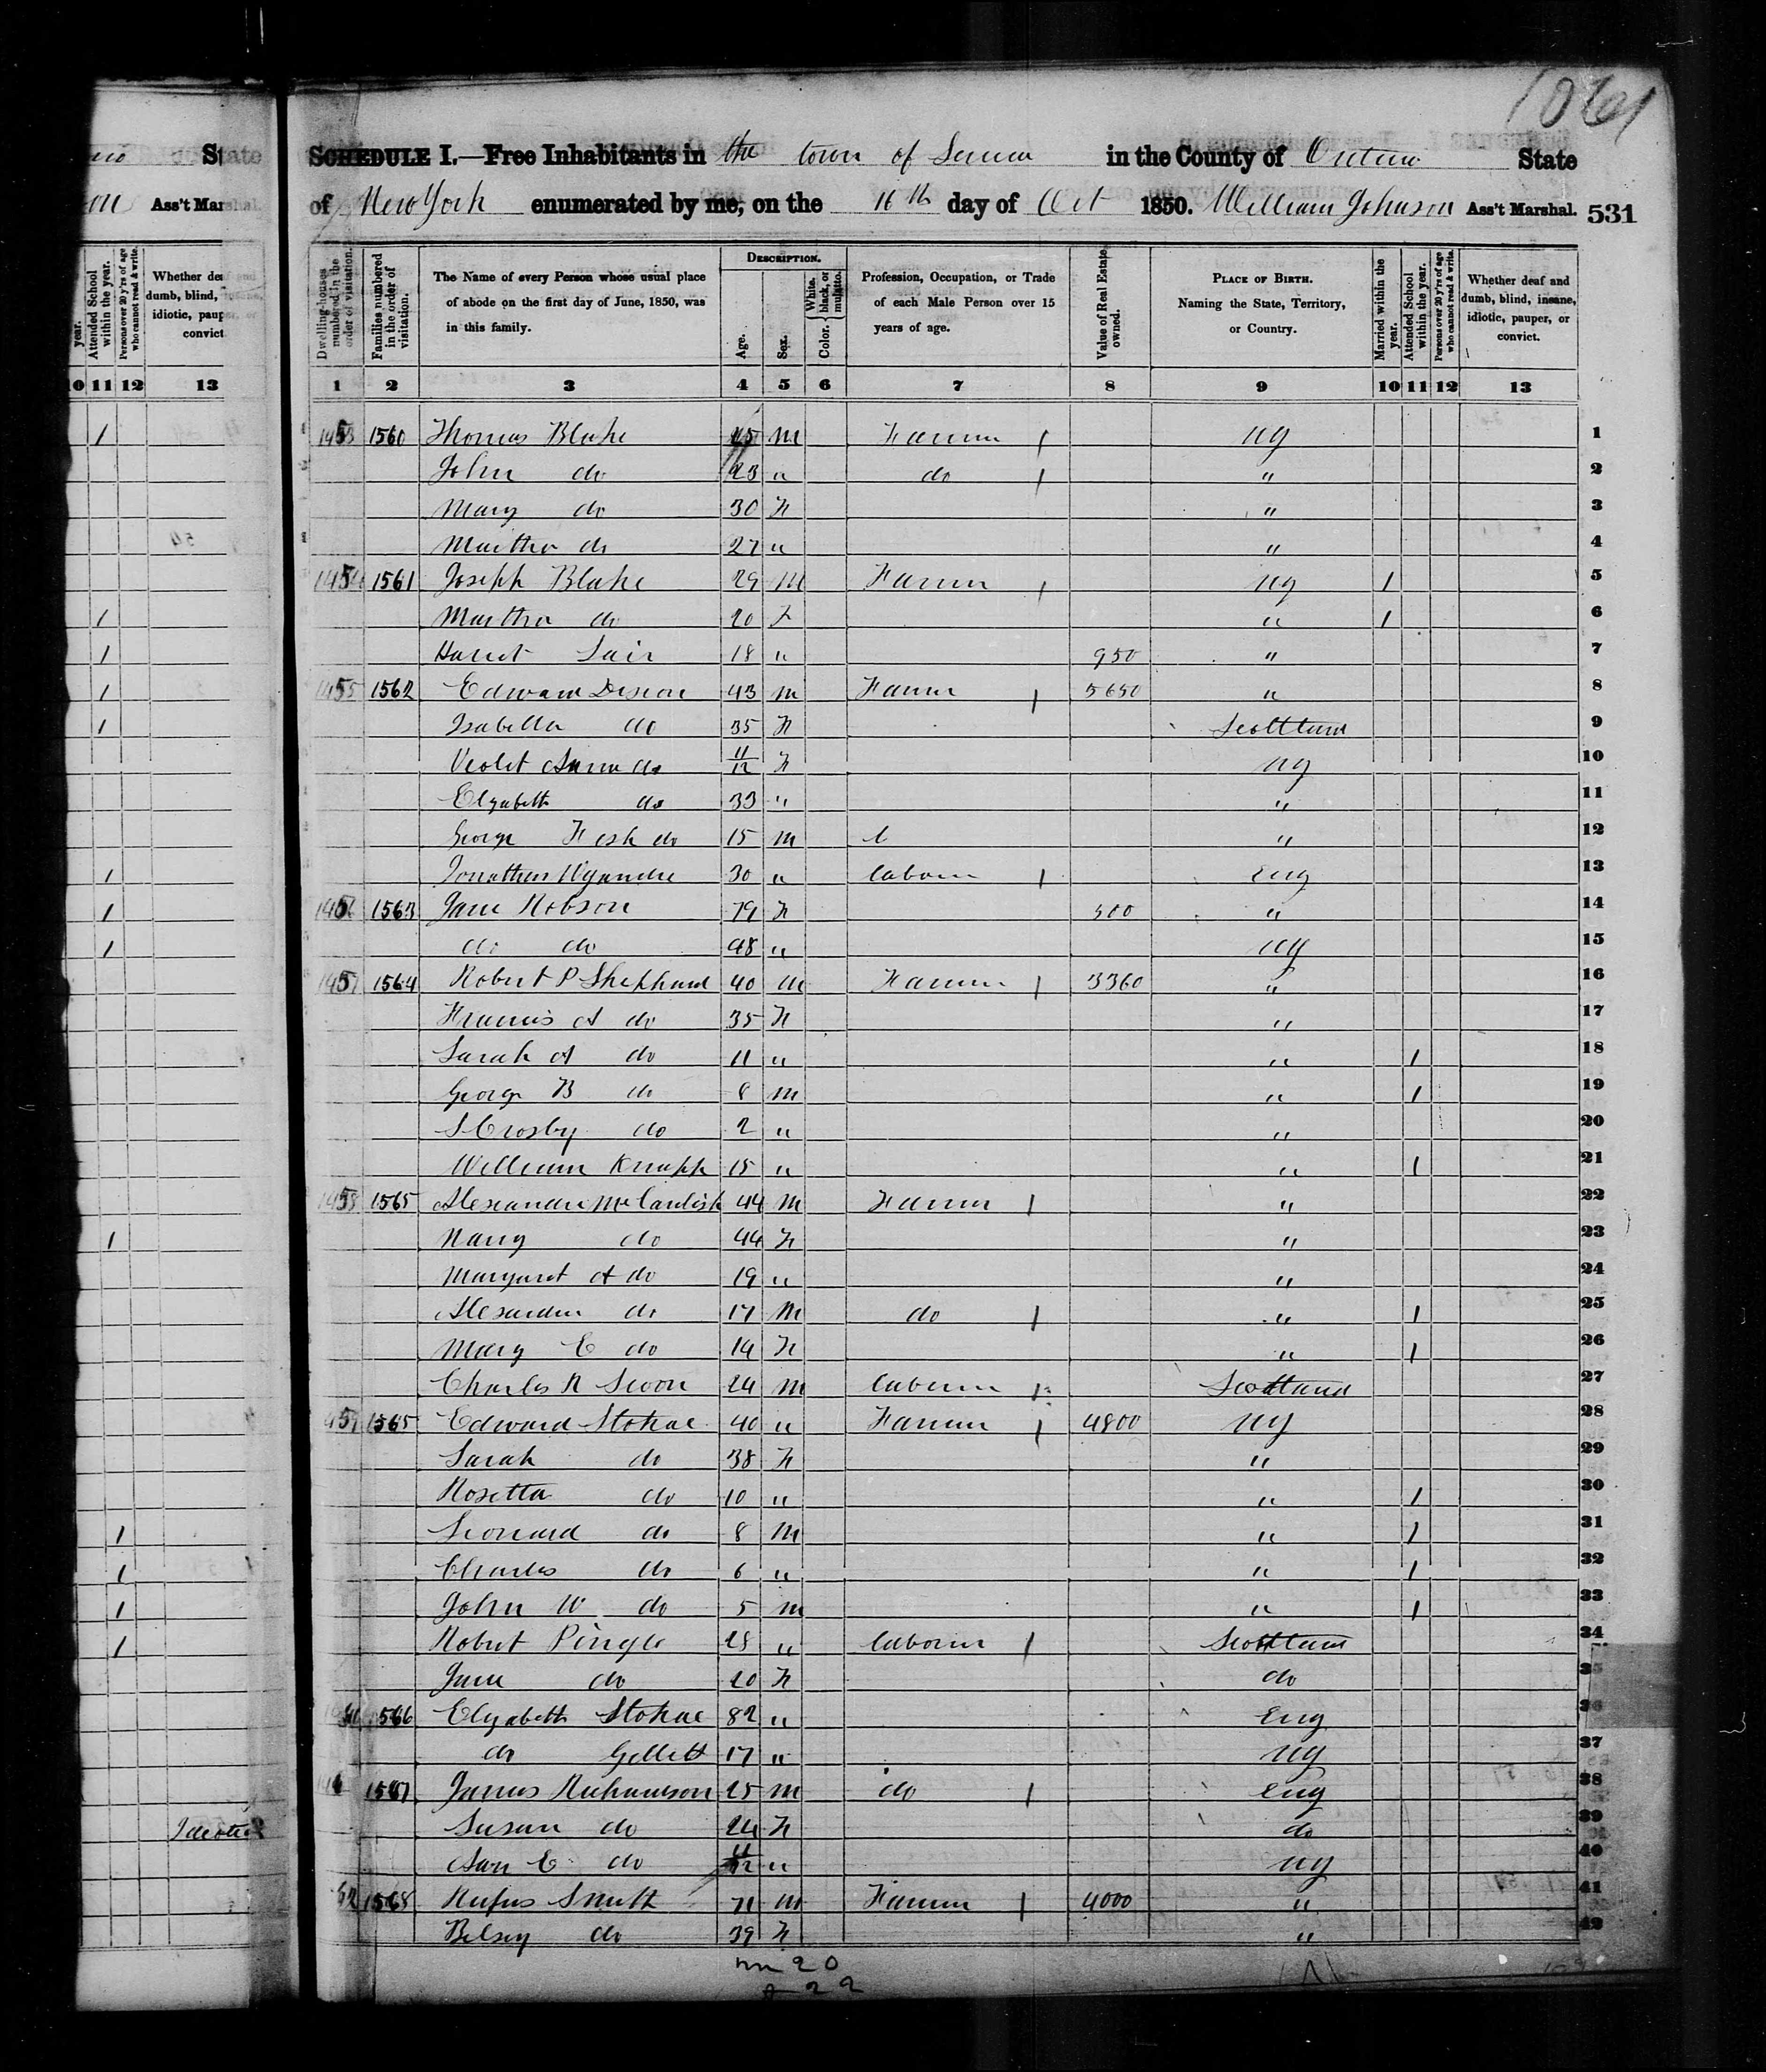 1061
SCHEDULE I.—Free Inhabitants in the town of Seneca in the County of Ontario State
of New York enumerated by me, on the 16th day of Oct 1850. William Johnson Ass't Marshal. 531
State
Ass't Marshal.
Dwelling-houses numbered in the order of visitation.
Families numbered in the order of visitation.
The Name of every Person whose usual place of abode on the first day of June, 1850, was in this family.
DESCRIPTION.
Age.
Sex.
Color. White, black, or mulatto.
Profession, Occupation, or Trade of each Male Person over 15 years of age.
Value of Real Estate owned.
PLACE OF BIRTH. Naming the State, Territory, or Country.
Married within the year.
Attended School within the year.
Persons over 20 y'rs of age who cannot read & write.
Whether deaf and dumb, blind, insane, idiotic, pauper, or convict.
1 2 3 4 5 6 7 8 9 10 11 12 13
1453 1560 Thomas Blake 45 M Farmer 1 NY 1
John do 23 " do 1 " 2
Mary do 30 F " 3
Martha do 27 " " 4
1454 1561 Joseph Blake 29 M Farmer 1 NY 1 5
Martha do 20 F " 1 6
Harriet 18 " 950 " 7
1455 1562 Edward Dixon 43 M Farmer 1 5650 " 8
Isabella do 35 F Scotland 9
Violet Ann do 11/12 F NY 10
Elizabeth do 33 " " 11
George do 15 M " 12
Jonathan 30 " Laborer 1 Eng 13
1456 1563 Jane Robson 79 F 500 " 14
do do 48 " NY 15
1457 1564 Robert P Shephard 40 M Farmer 1 3360 " 16
Francis A do 35 F " 17
Sarah A do 11 " " 1 18
George B do 8 M " 1 19
S Crosby do 2 " " 20
William Knapp 15 " " 1 21
1458 1565 Alexander McCandish 44 M Farmer 1 " 22
Nancy do 44 F " 23
Margaret A do 19 " " 24
Alexander do 17 M do 1 " 1 25
Mary E do 14 F " 1 26
Charles R 24 M Laborer 1 Scotland 27
1459 1565 Edward Stokoe 40 " Farmer 1 4800 NY 28
Sarah do 38 F " 29
Rosetta do 10 " " 1 30
Leonard do 8 M " 1 31
Charles do 6 " " 1 32
John W do 5 M " 1 33
Robert Pringle 28 " Laborer 1 Scotland 34
Jane do 20 F do 35
1566 Elizabeth Stokoe 82 " Eng 36
do Gillett 17 " NY 37
1567 James Richardson 25 M do 1 Eng 38
Susan do 24 F do 39
Ann E do 11/12 " NY 40
62 1568 Rufus Smith 71 M Farmer 1 4000 " 41
Betsey do 39 F " 42
m 20
f 22
Idiotic